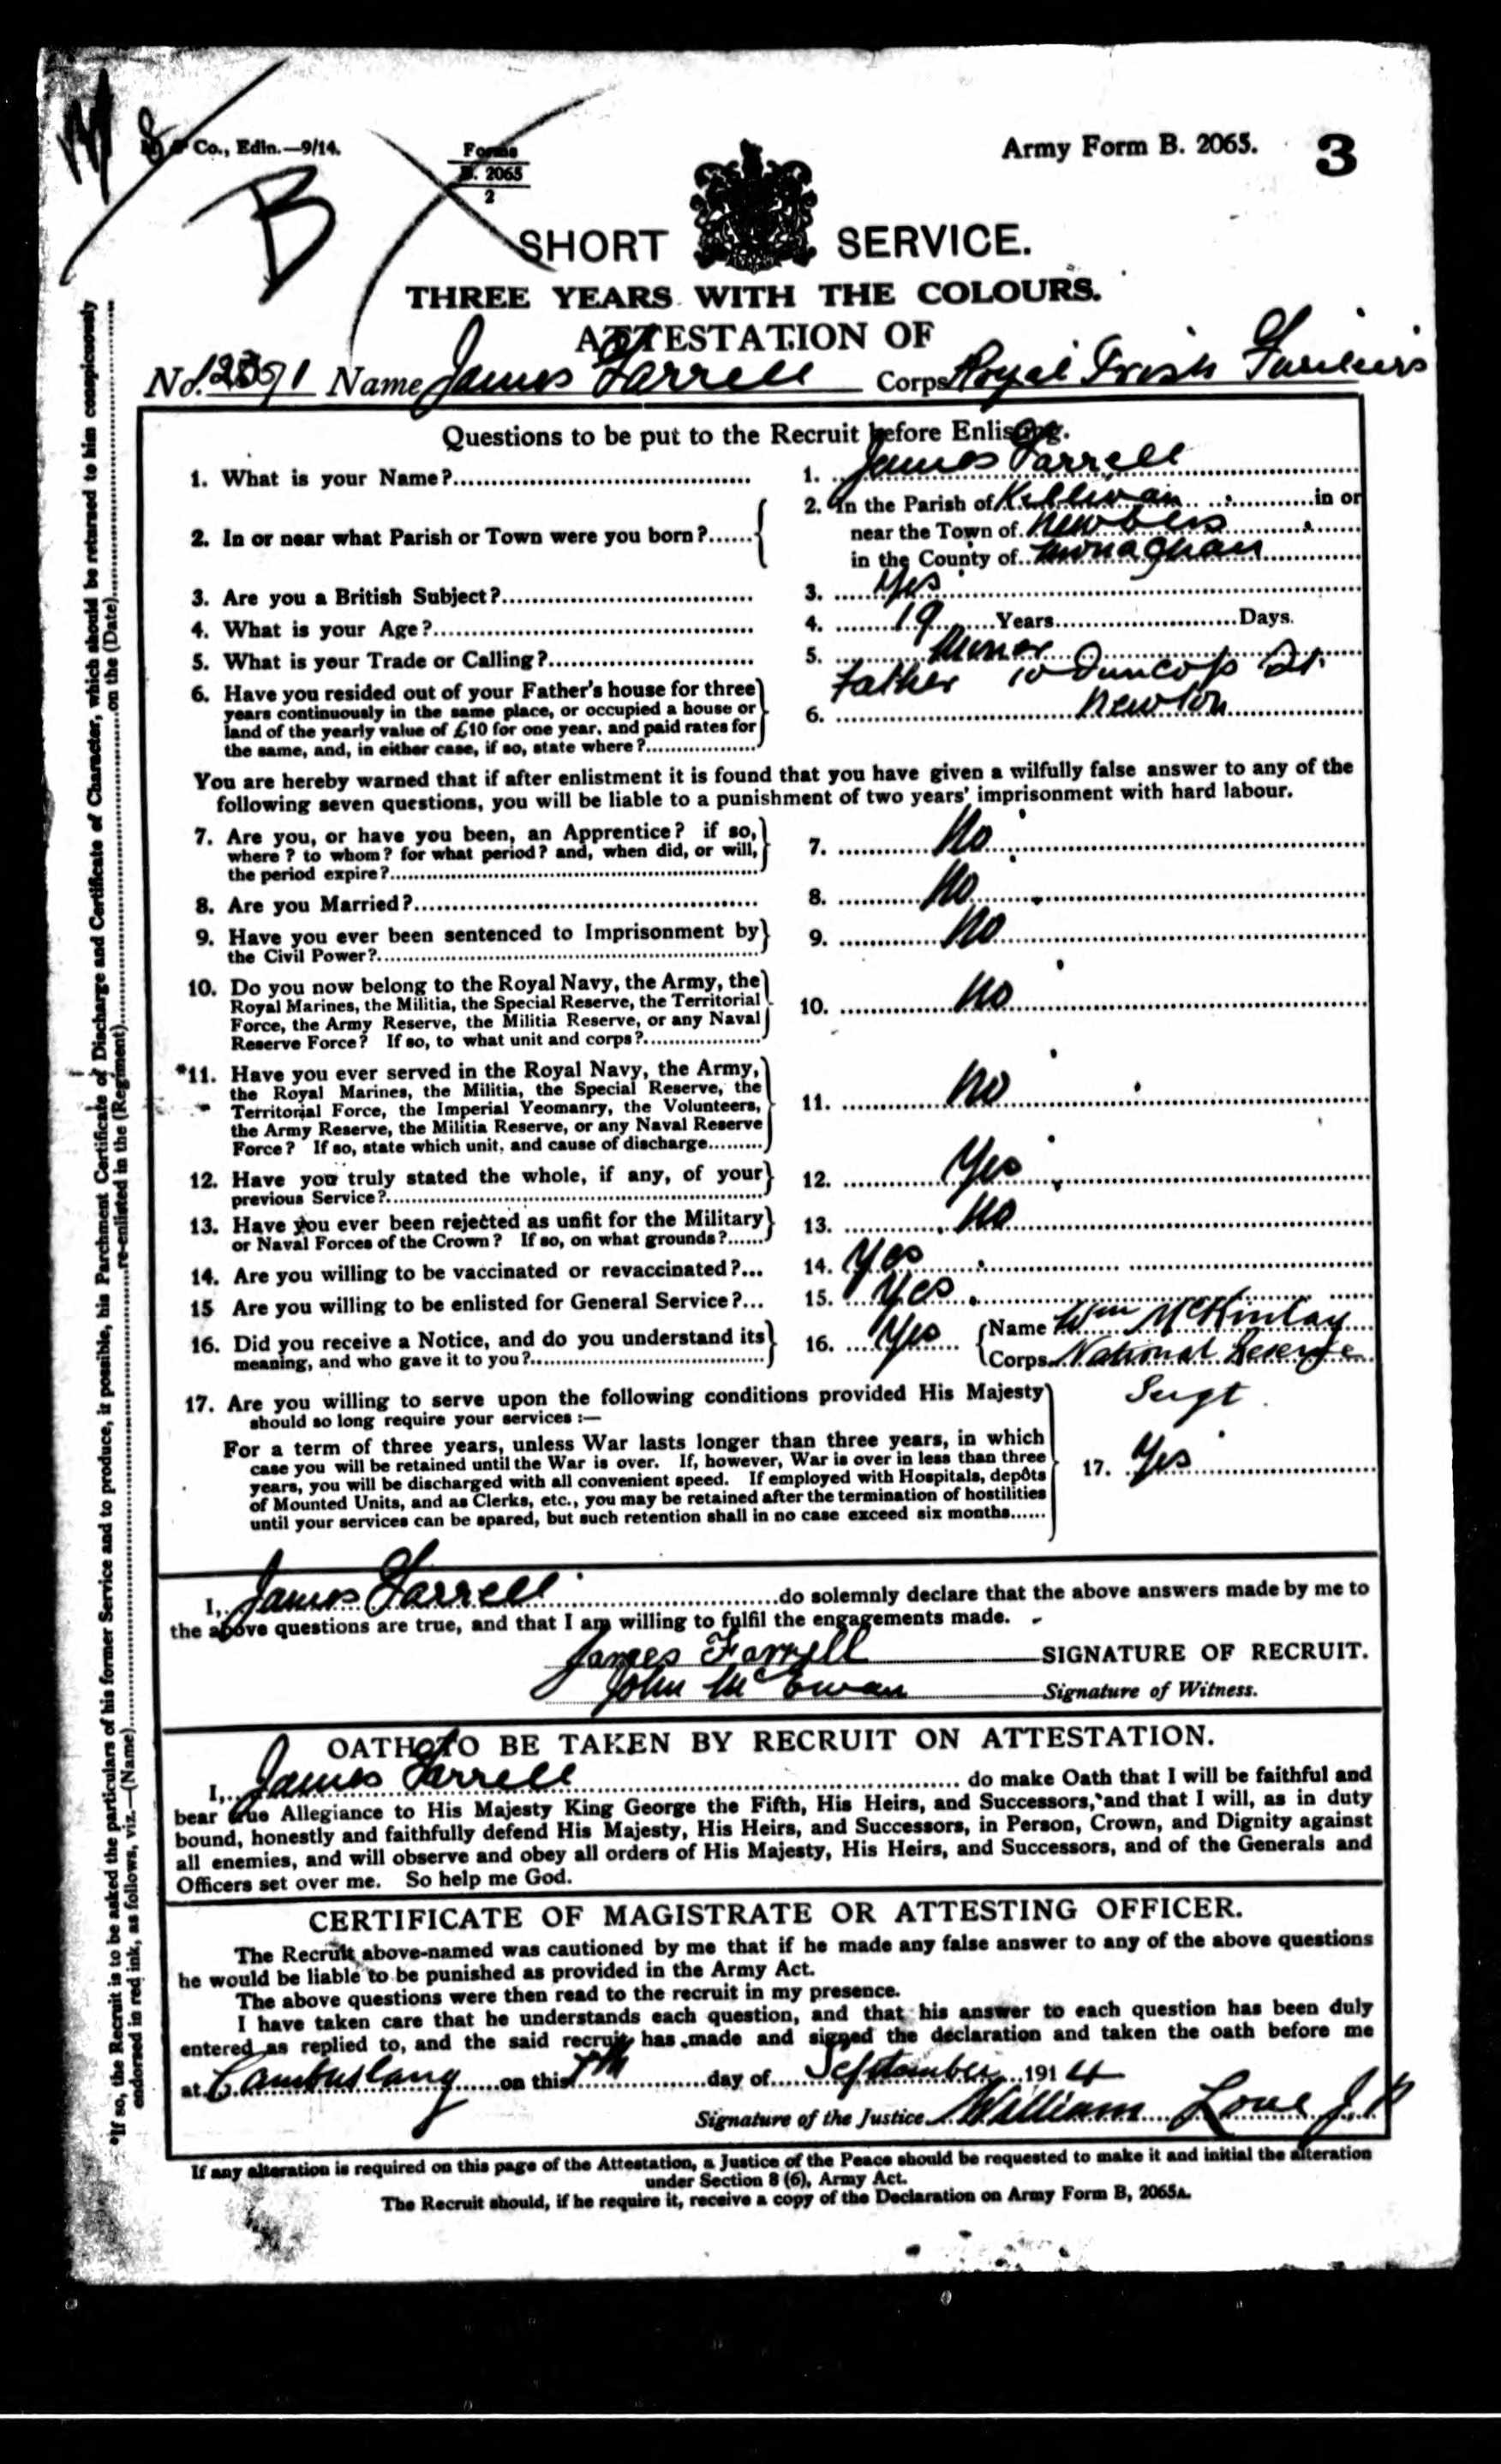 Co., Edin.—9/14.
Forms
B. 2065
2
Army Form B. 2065.
3
B
SHORT SERVICE.
THREE YEARS WITH THE COLOURS.
ATTESTATION OF
No. Name James Farrell Corps Royal Irish Fusiliers
Questions to be put to the Recruit before Enlisting.
1. What is your Name? 1. James Farrell
2. In or near what Parish or Town were you born? 2. In the Parish of Killevan in or
near the Town of Newbliss
in the County of Monaghan
3. Are you a British Subject? 3. Yes
4. What is your Age? 4. 19 Years Days.
5. What is your Trade or Calling? 5. Miner
6. Have you resided out of your Father's house for three
years continuously in the same place, or occupied a house or
land of the yearly value of £10 for one year, and paid rates for
the same, and, in either case, if so, state where?
6. Father 10 Dunlop St.
Newton
You are hereby warned that if after enlistment it is found that you have given a wilfully false answer to any of the
following seven questions, you will be liable to a punishment of two years' imprisonment with hard labour.
7. Are you, or have you been, an Apprentice? if so,
where? to whom? for what period? and, when did, or will,
the period expire?
7. No
8. Are you Married? 8. No
9. Have you ever been sentenced to Imprisonment by
the Civil Power?
9. No
10. Do you now belong to the Royal Navy, the Army, the
Royal Marines, the Militia, the Special Reserve, the Territorial
Force, the Army Reserve, the Militia Reserve, or any Naval
Reserve Force? If so, to what unit and corps?
10. No
*11. Have you ever served in the Royal Navy, the Army,
the Royal Marines, the Militia, the Special Reserve, the
Territorial Force, the Imperial Yeomanry, the Volunteers,
the Army Reserve, the Militia Reserve, or any Naval Reserve
Force? If so, state which unit, and cause of discharge
11. No
12. Have you truly stated the whole, if any, of your
previous Service?
12. Yes
13. Have you ever been rejected as unfit for the Military
or Naval Forces of the Crown? If so, on what grounds?
13. No
14. Are you willing to be vaccinated or revaccinated?... 14. Yes
15 Are you willing to be enlisted for General Service?... 15. Yes
16. Did you receive a Notice, and do you understand its
meaning, and who gave it to you?
16. Yes Name Wm McKinlay
Corps National Reserve
Sergt
17. Are you willing to serve upon the following conditions provided His Majesty
should so long require your services :—
For a term of three years, unless War lasts longer than three years, in which
case you will be retained until the War is over. If, however, War is over in less than three
years, you will be discharged with all convenient speed. If employed with Hospitals, depôts
of Mounted Units, and as Clerks, etc., you may be retained after the termination of hostilities
until your services can be spared, but such retention shall in no case exceed six months......
17. Yes
I, James Farrell do solemnly declare that the above answers made by me to
the above questions are true, and that I am willing to fulfil the engagements made.
James Farrell SIGNATURE OF RECRUIT.
John McEwan Signature of Witness.
OATH TO BE TAKEN BY RECRUIT ON ATTESTATION.
I, James Farrell do make Oath that I will be faithful and
bear true Allegiance to His Majesty King George the Fifth, His Heirs, and Successors, and that I will, as in duty
bound, honestly and faithfully defend His Majesty, His Heirs, and Successors, in Person, Crown, and Dignity against
all enemies, and will observe and obey all orders of His Majesty, His Heirs, and Successors, and of the Generals and
Officers set over me. So help me God.
CERTIFICATE OF MAGISTRATE OR ATTESTING OFFICER.
The Recruit above-named was cautioned by me that if he made any false answer to any of the above questions
he would be liable to be punished as provided in the Army Act.
The above questions were then read to the recruit in my presence.
I have taken care that he understands each question, and that his answer to each question has been duly
entered as replied to, and the said recruit has made and signed the declaration and taken the oath before me
at Cambuslang on this 7th day of September 1914
Signature of the Justice William Love J.P
If any alteration is required on this page of the Attestation, a Justice of the Peace should be requested to make it and initial the alteration
under Section 8 (6), Army Act.
The Recruit should, if he require it, receive a copy of the Declaration on Army Form B, 2065A.
*If so, the Recruit is to be asked the particulars of his former Service and to produce, if possible, his Parchment Certificate of Discharge and Certificate of Character, which should be returned to him conspicuously
endorsed in red ink, as follows, viz.—(Name) re-enlisted in the (Regiment) on the (Date)